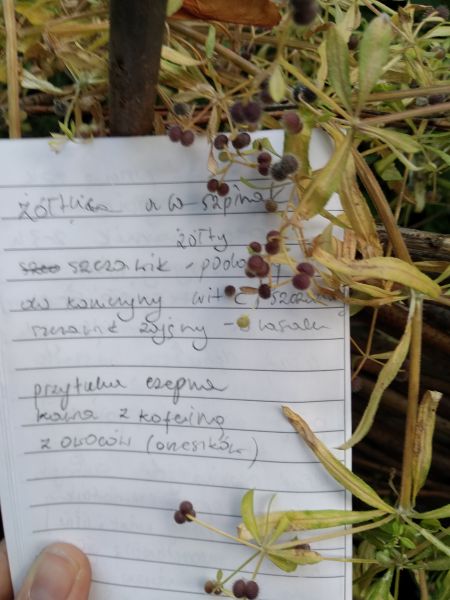 żółtlica a'la szpinak
żółty
szczawik - podobny
do koniczyny wit C, szczawiany
szczawik zajęczy -
przytulia czepna
kawa z kofeiną
z owoców (orzeszków)